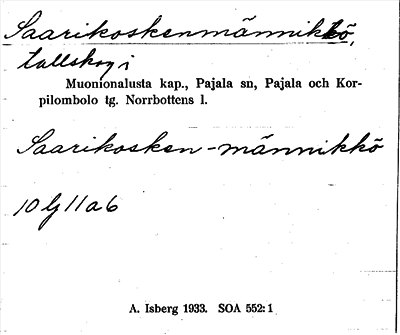 Saarikoskenmännikkö,
tallskog i
Muonionalusta kap., Pajala sn, Pajala och Kor-
pilombolo tg. Norrbottens l.
Saarikosken-männikkö
10 lj 11 a 6
A. Isberg 1933. SOA 552:1